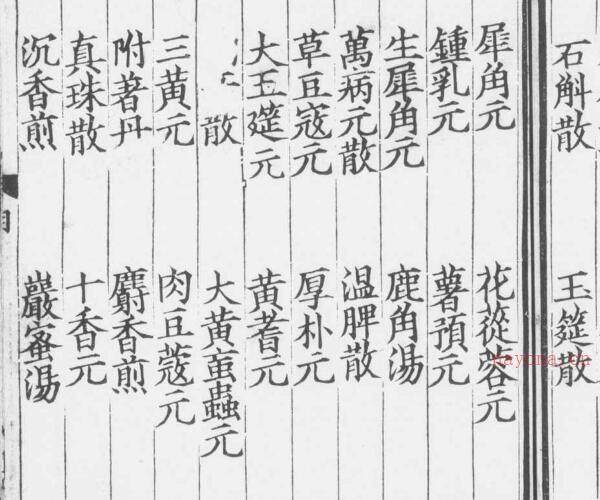 石斛散
玉筵散
犀角元
花蓯蓉元
鍾乳元
薯預元
生犀角元
鹿角湯
萬病元散
温脾散
草豆寇元
厚朴元
大玉筵元
黄耆元
散
大黄䖟蟲元
三黄元
肉豆蔻元
附著丹
麝香煎
真珠散
十香元
沉香煎
巖蜜湯